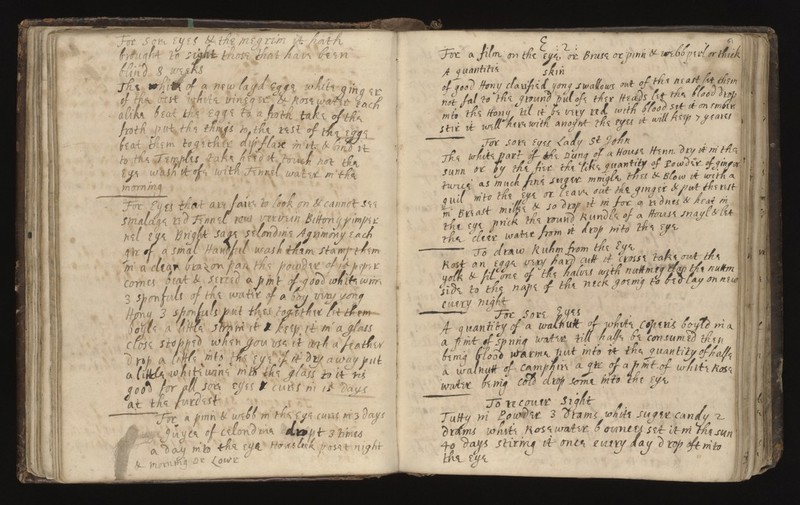 For sore Eyes & the megrim it hath
brought to sight those that have been
blind 8 weeks
The white of a new layd egge white ginger
of the best white vinegar & Rosewater each
alike beat the egge to a froth take of the
froth put the things to the rest of the egge
beat them together dip flax in it & bind it
to the Temples take heed it touch not the
Eye wash it ofe with Fennel water in the
morning
For Eyes that are faire to look on & cannot see
smalage red Fennel row vervain Bittony pimper
nel eye bright sage selondine Agrimony each
qtr of a smal Handful wash them stamp them
in a clean brazon pan the powder of 15 peper
cornes beat & serced a pint of good white wine
3 sponfuls of the water of a boy very yong
Hony 3 sponfuls put thes together let them
boyle a little straine it & keep it in a glass
close stopped when you use it with a feather
drop a little into the Eye if it dry away put
a little white wine into the glass to it tis
good for all sore eyes & cures in 15 Days
at the furdest
For a pinn & webb in the Eye cures in 3 days
Juyce of celondine dropt 3 times
a day into the eye Houseleek posset night
& morning
For a film on the eye or Bruse or pinn & webb perl or thick
skin
A quantitie
of good Hony clarified yong swallows out of the neast let them
not fal to the ground pul of ther Heads let the blood drop
into the Hony til it be very red with blood set it on embers
stir it well here with anoynt the eyes it will keep 7 yeares
For sore eyes Lady St John
The white part of the Dung of a House Henn dry it in the
sunn or by the fire the like quantity of powder of ginger
twice as much fine suger mingle thes & Blow it with a
quil into the Eye or leave out the ginger & put the rest
in Breast melke & so drop it in for a rednes & heat in
the eye prick the round Rundle of a House snayl & let
the cleer water from it drop into the Eye
To draw Ruhm from the Eye
Rost an egge very hard cutt it cross take out the
yolk & fil one of the halves with nuttmeg clap the nuttm
side to the nape of the neck going to bed lay on new
every night
For sore Eyes
A quantity of a walnutt of white coperis boyld in a
a pint of spring water till halfe be consumed then
being blood warme put into it the quantity of halfe
a walnutt of camphire a qtr of a pint of white Rose
water being cold drop some into the eye
To recover Sight
Tutty in Powder 3 drams white suger candy 2
drams white Rosewater 6 ounces set it in the sun
40 days stiring it once every day drop oft into
the Eye